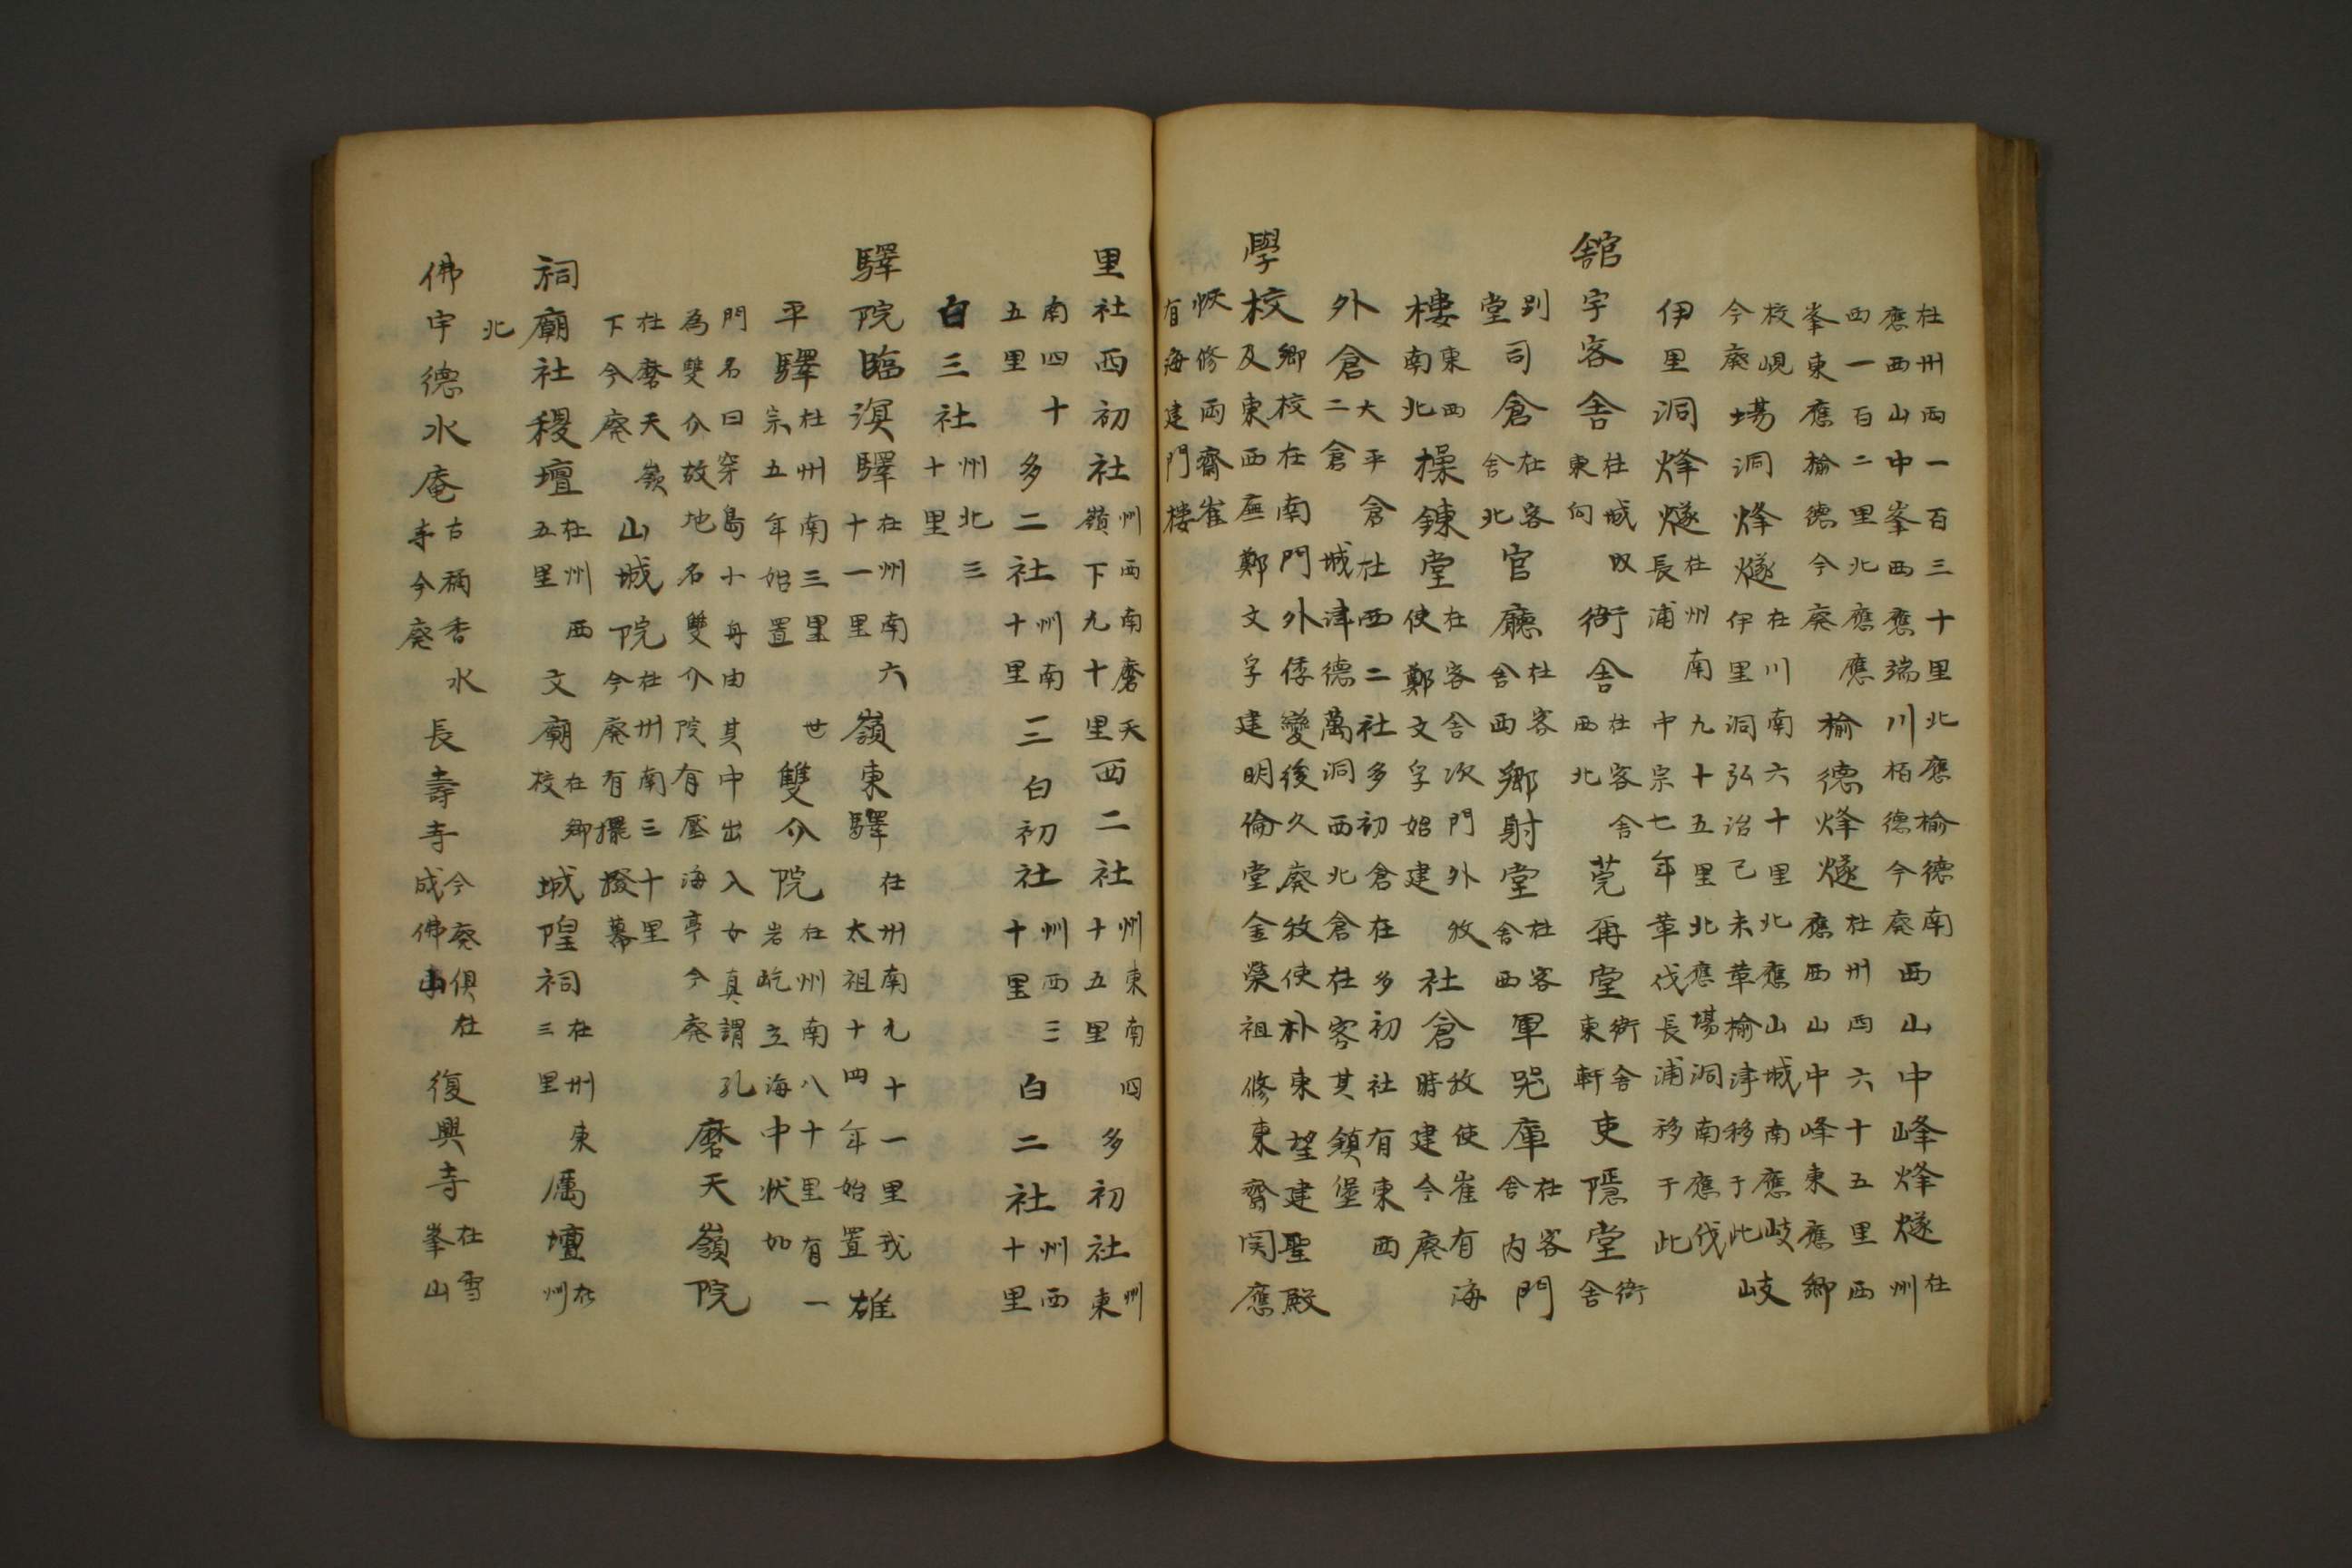 在州西一百三十里北應榆德南應西山中峯西應端川栢德今廢西山中峰烽燧在州
西一百二里北應應峯東應榆德今廢榆德烽燧在州西六十五里西應西山中峰東應鄉
校峴今廢場洞烽燧在川南六十里北應山城南應岐伊里洞弘治己未革榆津移于此岐
伊里洞烽燧在州南九十五里北應場洞南應伐長浦中宗七年革伐長浦移于此
館宇客舍在城東向衙舍在客舍西北莞再堂衙舍東軒吏隱堂衙舍
別堂司倉在客舍北官廳在客舍西鄉射堂在客舍西軍器庫在客舍内門
樓東西南北操鍊堂在客舍次門外牧使鄭文孚始建社倉牧使崔有海時建今廢
外倉大平倉在西二社多初倉在多初社有東西二倉城津德萬洞西北倉在客其鎮堡
學校鄉校在南門外倭變後久廢牧使朴東望建聖殿及東西廡鄭文孚建明倫堂金榮祖修東齋関應
恢修兩齋崔有海建門樓
里社西初社州西南磨天嶺下九十里西二社州東南四十五里多初社州東
南四十五里多二社州南十里三白初社州西三十里三白二社州西十里
白三社州北三十里
驛院臨溟驛在州南六十一里嶺東驛在州南九十一里我太祖十四年始置雄
平驛在州南三里世宗五年始置雙介院在州南八十里有一岩屹立海中状如
門名曰穿島小舟由其中出入女真謂孔為雙介故地名雙介院有壓海亭今廢磨天嶺院
在磨天嶺下今廢山城院在州南三十里今廢有擺撥幕
祠廟社稷壇在州西五里文廟在鄉校城隍祠在州東三里厲壇在州
北
佛宇德水庵古稱香水寺今廢長壽寺今廢俱在成佛山復興寺在雪峯山